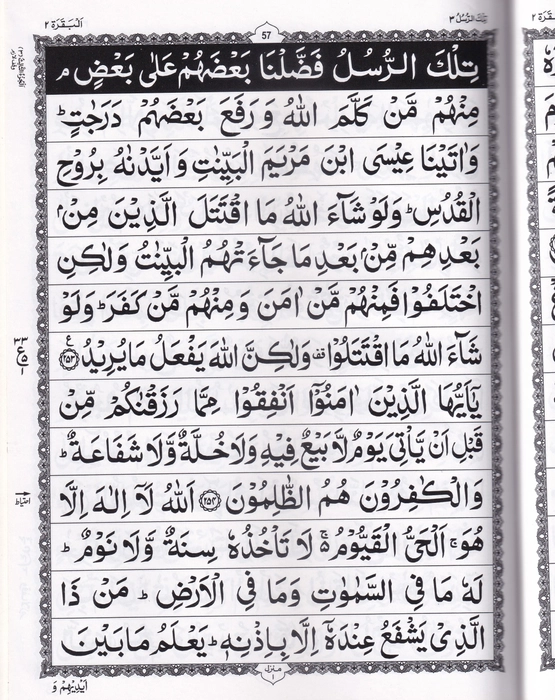 تِلْكَ الرُّسُلُ ٣
اَلْبَقَرَة ٢
57
تِلْكَ الرُّسُلُ فَضَّلْنَا بَعْضَهُمْ عَلٰى بَعْضٍ ۘ
مِنْهُمْ مَّنْ كَلَّمَ اللّٰهُ وَ رَفَعَ بَعْضَهُمْ دَرَجٰتٍ ؕ
وَاٰتَيْنَا عِيْسَى ابْنَ مَرْيَمَ الْبَيِّنٰتِ وَاَيَّدْنٰهُ بِرُوْحِ
الْقُدُسِ ؕ وَلَوْ شَآءَ اللّٰهُ مَا اقْتَتَلَ الَّذِيْنَ مِنْۢ
بَعْدِهِمْ مِّنْۢ بَعْدِ مَا جَآءَتْهُمُ الْبَيِّنٰتُ وَلٰكِنِ
اخْتَلَفُوْا فَمِنْهُمْ مَّنْ اٰمَنَ وَمِنْهُمْ مَّنْ كَفَرَ ؕ وَلَوْ
شَآءَ اللّٰهُ مَا اقْتَتَلُوْا ۫ وَلٰكِنَّ اللّٰهَ يَفْعَلُ مَا يُرِيْدُ ﴿٢٥٣﴾ ع
يٰٓاَيُّهَا الَّذِيْنَ اٰمَنُوْٓا اَنْفِقُوْا مِمَّا رَزَقْنٰكُمْ مِّنْ
قَبْلِ اَنْ يَّاْتِيَ يَوْمٌ لَّا بَيْعٌ فِيْهِ وَلَا خُلَّةٌ وَّلَا شَفَاعَةٌ ؕ
وَالْكٰفِرُوْنَ هُمُ الظّٰلِمُوْنَ ﴿٢٥٤﴾ اَللّٰهُ لَآ اِلٰهَ اِلَّا
هُوَ ۚ اَلْحَيُّ الْقَيُّوْمُ ۬ۚ لَا تَاْخُذُهٗ سِنَةٌ وَّلَا نَوْمٌ ؕ
لَهٗ مَا فِي السَّمٰوٰتِ وَمَا فِي الْاَرْضِ ؕ مَنْ ذَا
الَّذِيْ يَشْفَعُ عِنْدَهٗٓ اِلَّا بِاِذْنِهٖ ؕ يَعْلَمُ مَا بَيْنَ
منزل ١
اَيْدِيْهِمْ وَ